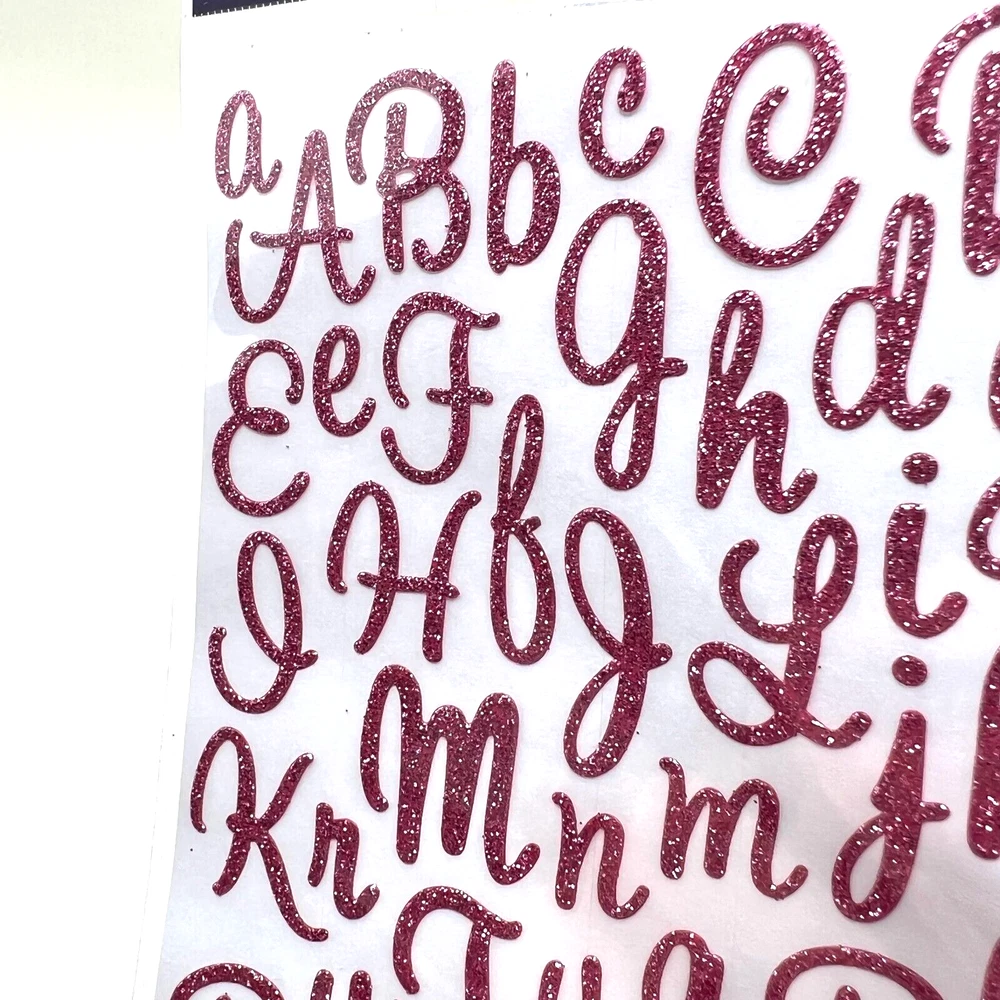 a A B b c C
E e F g h d
I H f J L i
K r M n m j
T